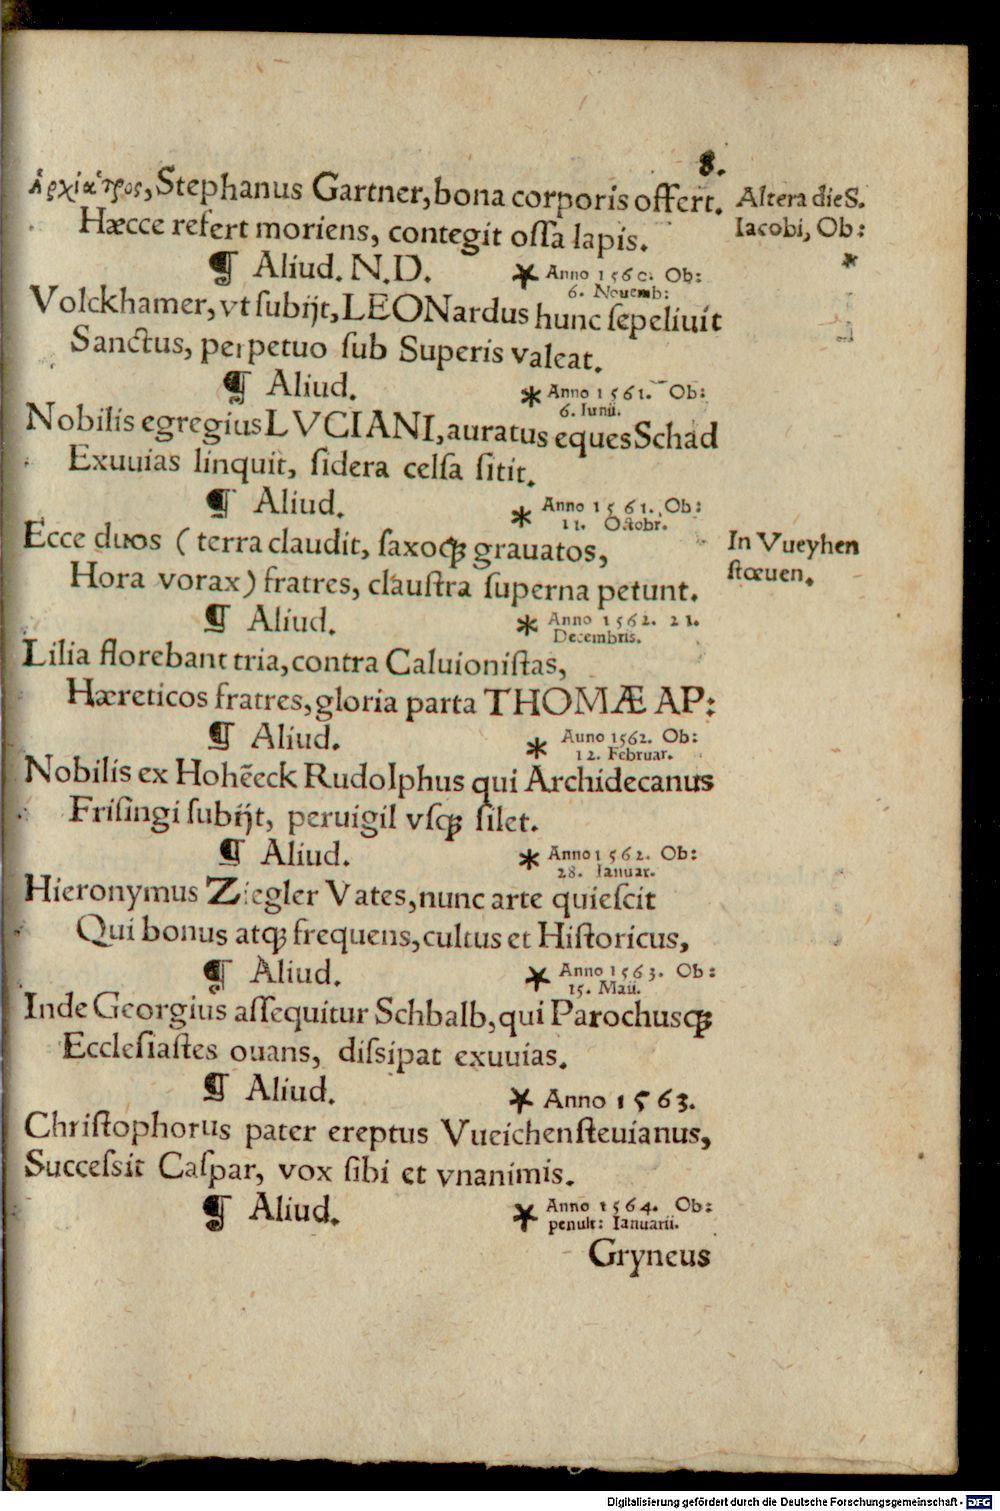 8.
Ἀρχίατρος, Stephanus Gartner, bona corporis offert.
Altera die S.
Iacobi, Ob:
*
Hæcce refert moriens, contegit ossa lapis.
¶ Aliud. N.D. * Anno 1560. Ob:
6. Nouemb:
Volckhamer, vt subijt, LEONardus hunc sepeliuit
Sanctus, perpetuo sub Superis valeat.
¶ Aliud. * Anno 1561. Ob:
6. Iunii.
Nobilis egregius LVCIANI, auratus eques Schad
Exuuias linquit, sidera celsa sitit.
¶ Aliud. * Anno 1561. Ob:
11. Octobr.
Ecce duos ( terra claudit, saxoqꝫ grauatos,
In Vueyhen
stœuen.
Hora vorax) fratres, claustra superna petunt.
¶ Aliud. * Anno 1562. 21.
Decembris.
Lilia florebant tria, contra Caluionistas,
Hæreticos fratres, gloria parta THOMÆ AP:
¶ Aliud. * Auno 1562. Ob:
12. Februar.
Nobilis ex Hohẽeck Rudolphus qui Archidecanus
Frisingi subijt, peruigil vsqꝫ silet.
¶ Aliud. * Anno 1562. Ob:
28. Ianuar.
Hieronymus Ziegler Vates, nunc arte quiescit
Qui bonus atqꝫ frequens, cultus et Historicus,
¶ Aliud. * Anno 1563. Ob:
15. Maii.
Inde Georgius assequitur Schbalb, qui Parochusqꝫ
Ecclesiastes ouans, dissipat exuuias.
¶ Aliud. * Anno 1563.
Christophorus pater ereptus Vueichensteuianus,
Successit Caspar, vox sibi et vnanimis.
¶ Aliud. * Anno 1564. Ob:
penult: Ianuarii.
Gryneus
Digitalisierung gefördert durch die Deutsche Forschungsgemeinschaft - DFG